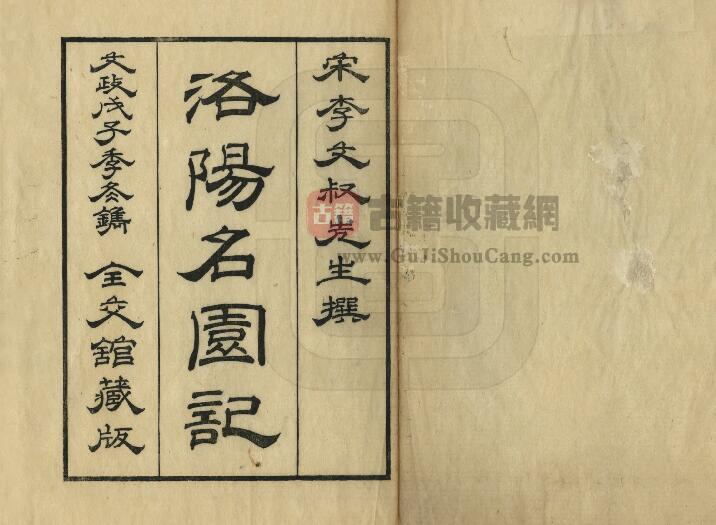 宋李文叔先生撰
洛陽名園記
文政戊子季冬鐫 全交館藏版
古籍
古籍收藏網
www.GuJiShouCang.com